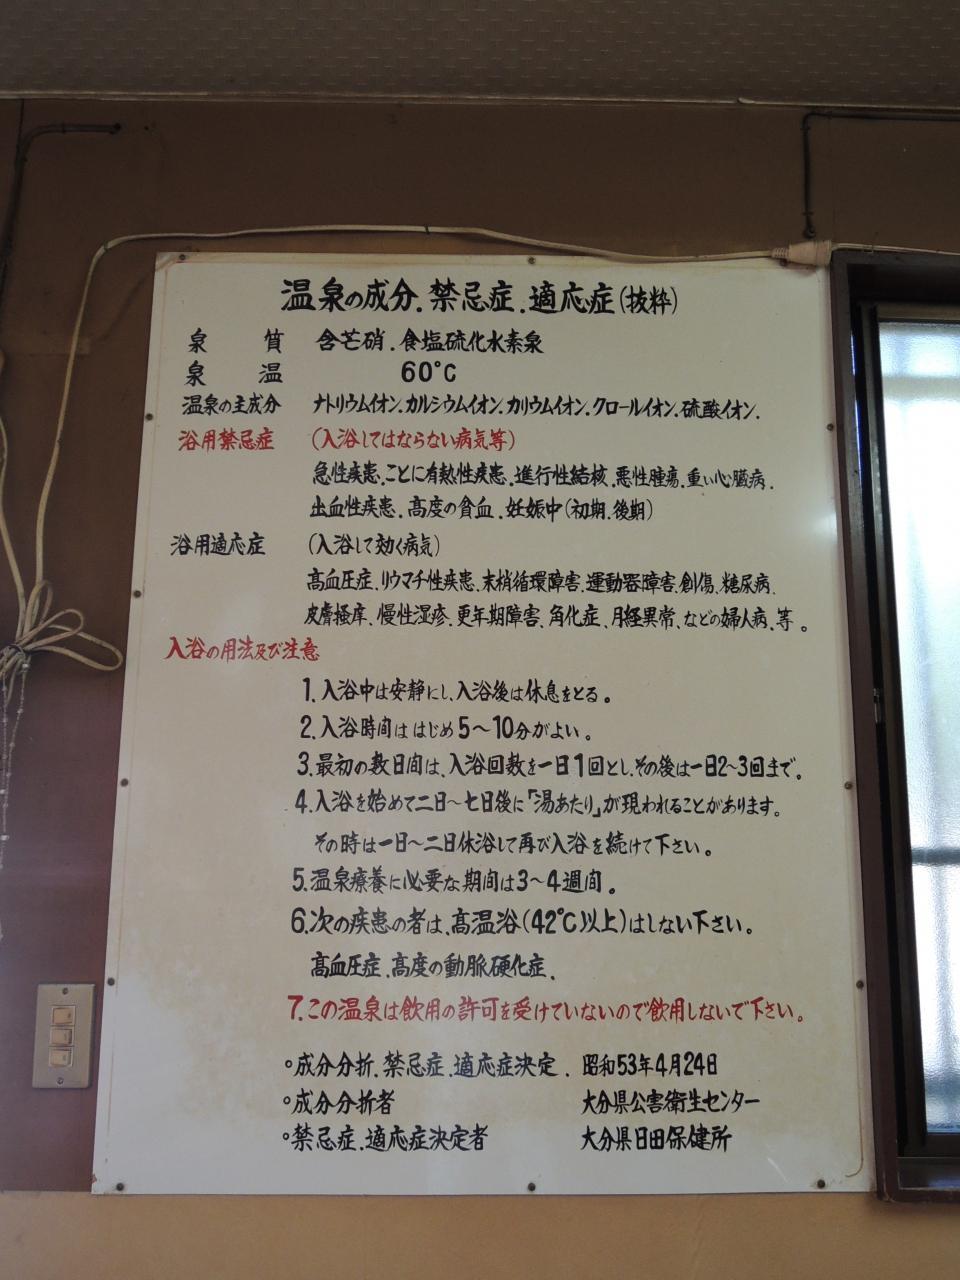 温泉の成分.禁忌症.適応症(抜粋)
泉質 含芒硝.食塩硫化水素泉
泉温 60℃
温泉の主成分 ナトリウムイオン.カルシウムイオン.カリウムイオン.クロールイオン.硫酸イオン.
浴用禁忌症 (入浴してはならない病気等)
急性疾患.ことに有熱性疾患.進行性結核.悪性腫瘍.重い心臓病.
出血性疾患.高度の貧血.妊娠中(初期.後期)
浴用適応症 (入浴して効く病気)
高血圧症.リウマチ性疾患.末梢循環障害.運動器障害.創傷.糖尿病.
皮膚掻痒.慢性湿疹.更年期障害.角化症.月経異常.などの婦人病.等。
入浴の用法及び注意
1.入浴中は安静にし、入浴後は休息をとる。
2.入浴時間ははじめ5〜10分がよい。
3.最初の数日間は、入浴回数を一日1回とし、その後は一日2〜3回まで。
4.入浴を始めて二日〜七日後に「湯あたり」が現われることがあります。
その時は一日〜二日休浴して再び入浴を続けて下さい。
5.温泉療養に必要な期間は3〜4週間。
6.次の疾患の者は、高温浴(42℃以上)はしない下さい。
高血圧症.高度の動脈硬化症.
7.この温泉は飲用の許可を受けていないので飲用しないで下さい。
○成分分析.禁忌症.適応症決定. 昭和53年4月24日
○成分分析者 大分県公害衛生センター
○禁忌症.適応症決定者 大分県日田保健所